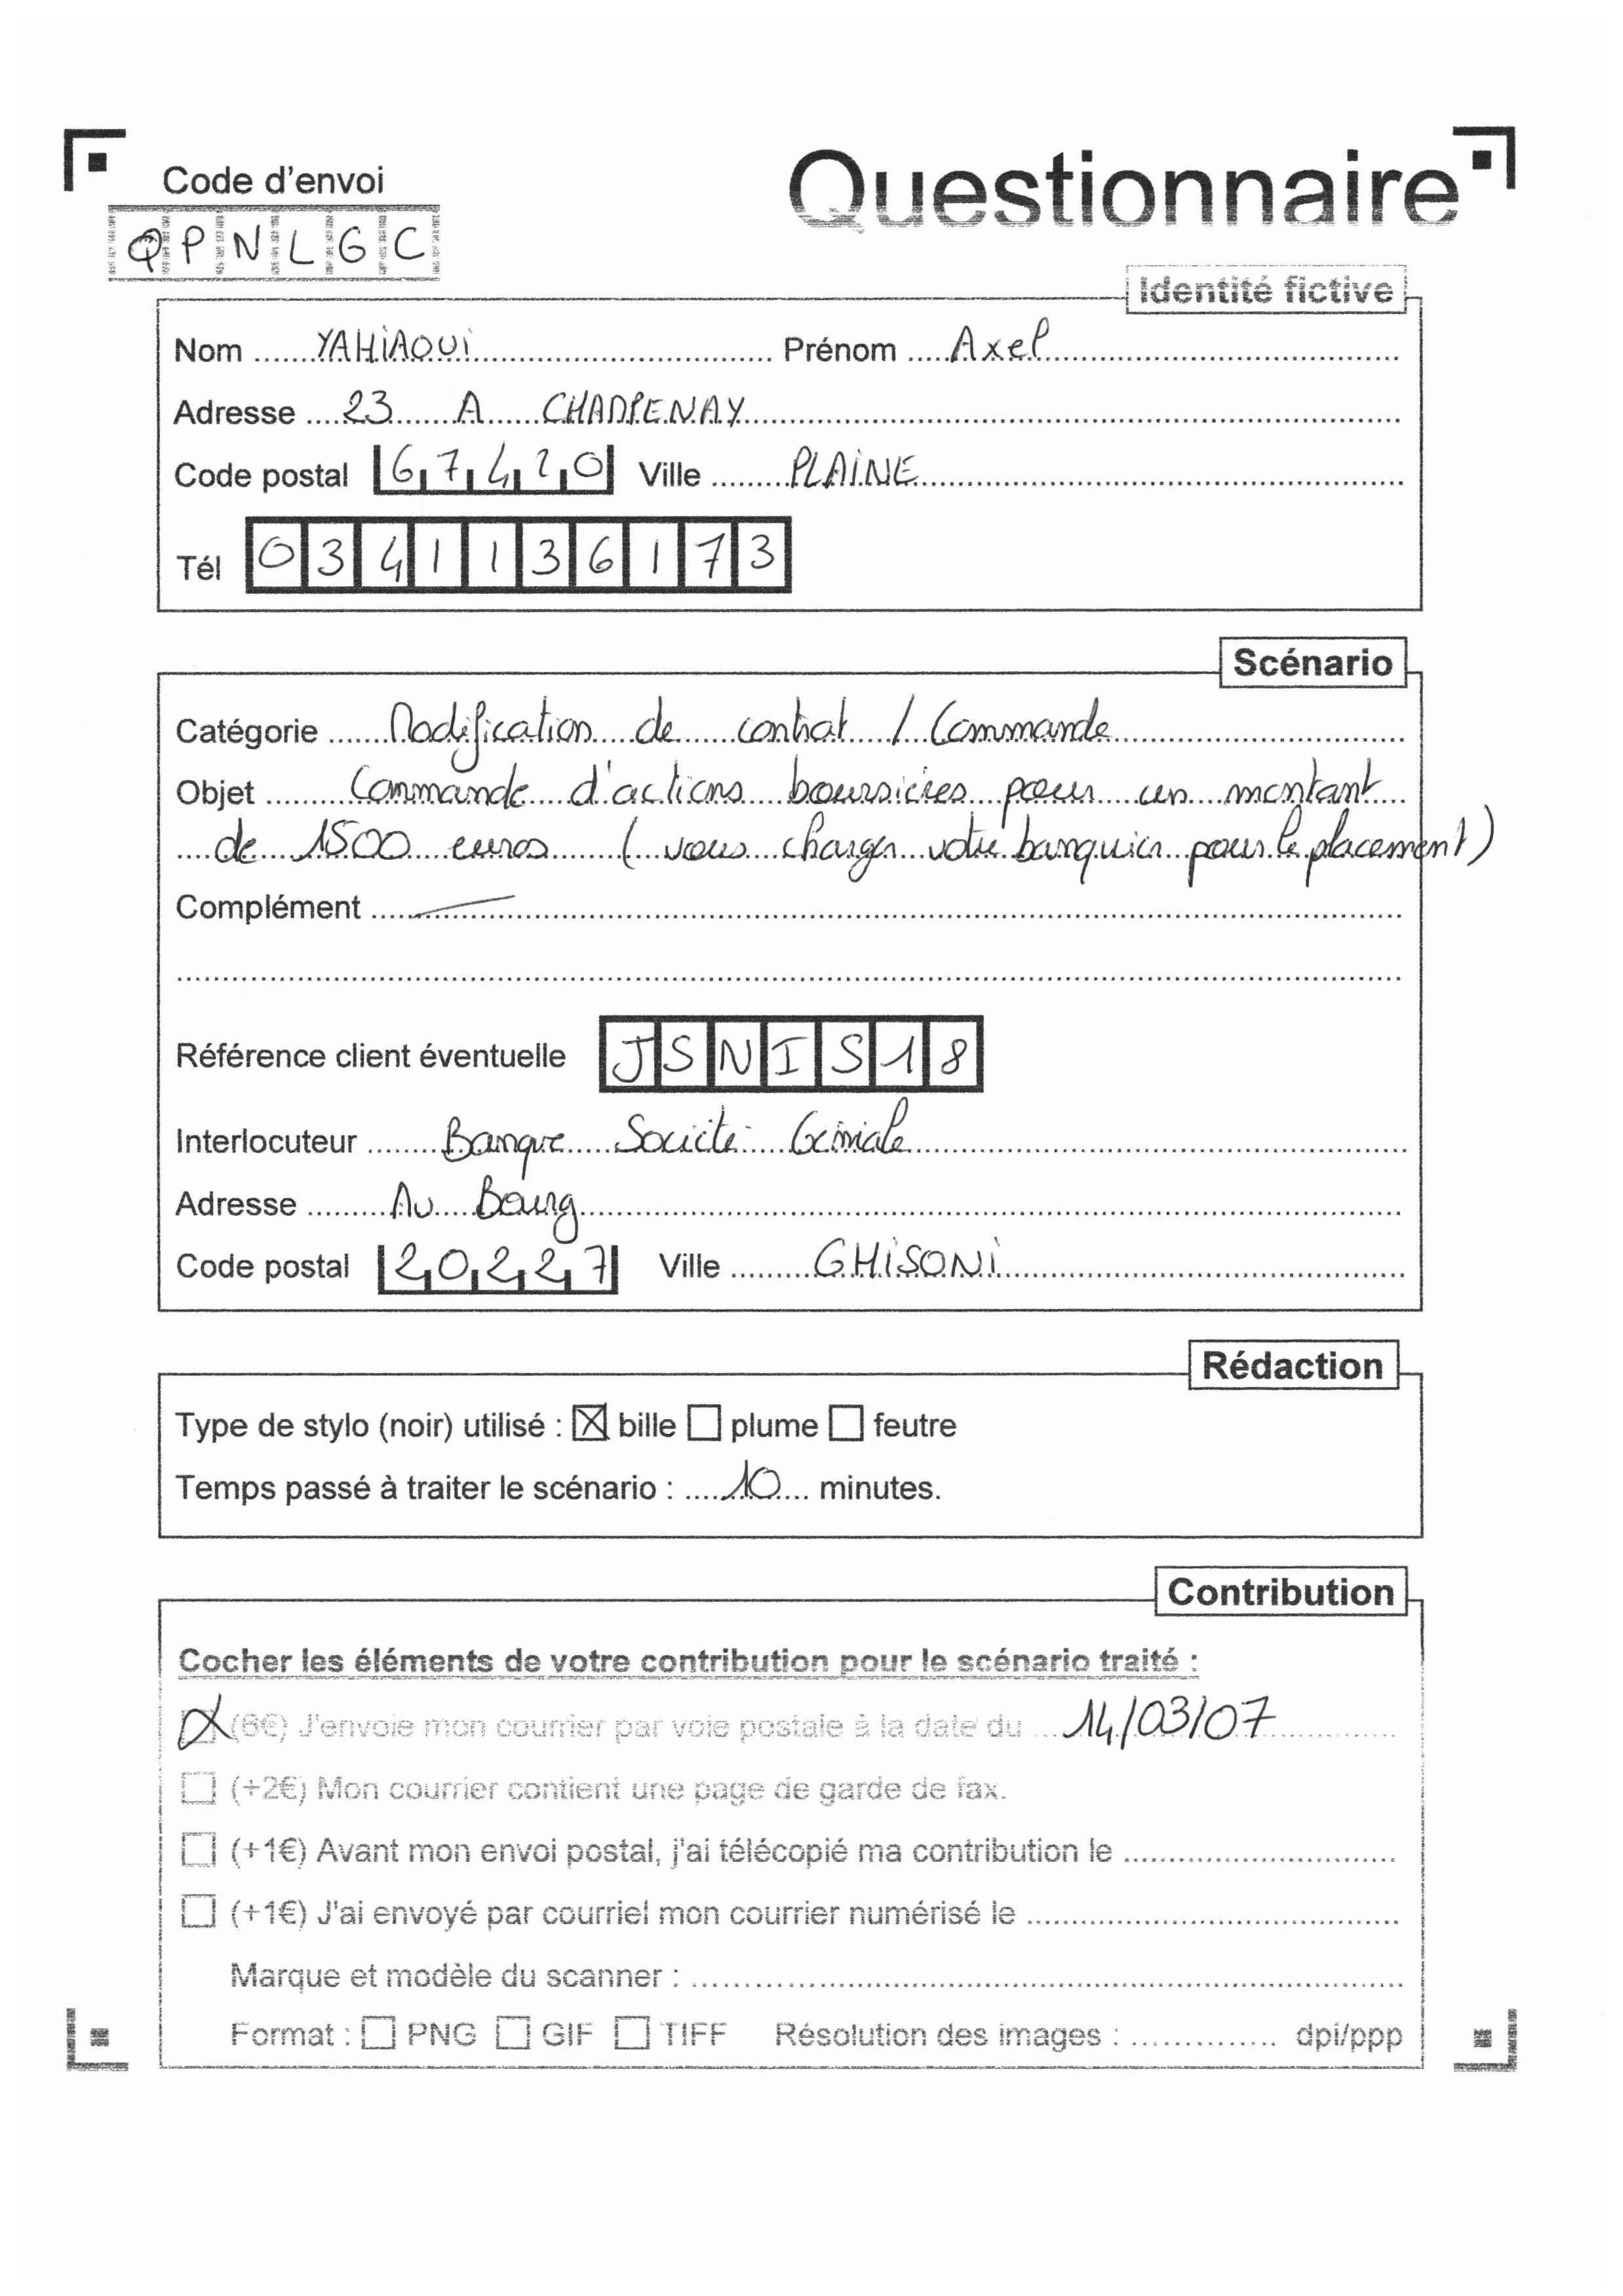 Code d'envoi
Questionnaire
QPNLGC
Identité fictive
Nom YAHIAOUI Prénom Axel
Adresse 23 A CHADPENAY
Code postal 67420 Ville PLAINE
Tél 0341136173
Scénario
Catégorie Modification de contrat / Commande
Objet Commande d'actions boursières pour un montant
de 1500 euros (vous charger votre banquier pour le placement)
Complément
Référence client éventuelle JSNIS18
Interlocuteur Banque Société Géniale
Adresse Au Bourg
Code postal 20227 Ville GHISONI
Rédaction
Type de stylo (noir) utilisé : bille plume feutre
Temps passé à traiter le scénario : 10 minutes.
Contribution
Cocher les éléments de votre contribution pour le scénario traité :
(6€) J'envoie mon courrier par voie postale à la date du 14/03/07
(+2€) Mon courrier contient une page de garde de fax.
(+1€) Avant mon envoi postal, j'ai télécopié ma contribution le
(+1€) J'ai envoyé par courriel mon courrier numérisé le
Marque et modèle du scanner :
Format : PNG GIF TIFF Résolution des images : dpi/ppp